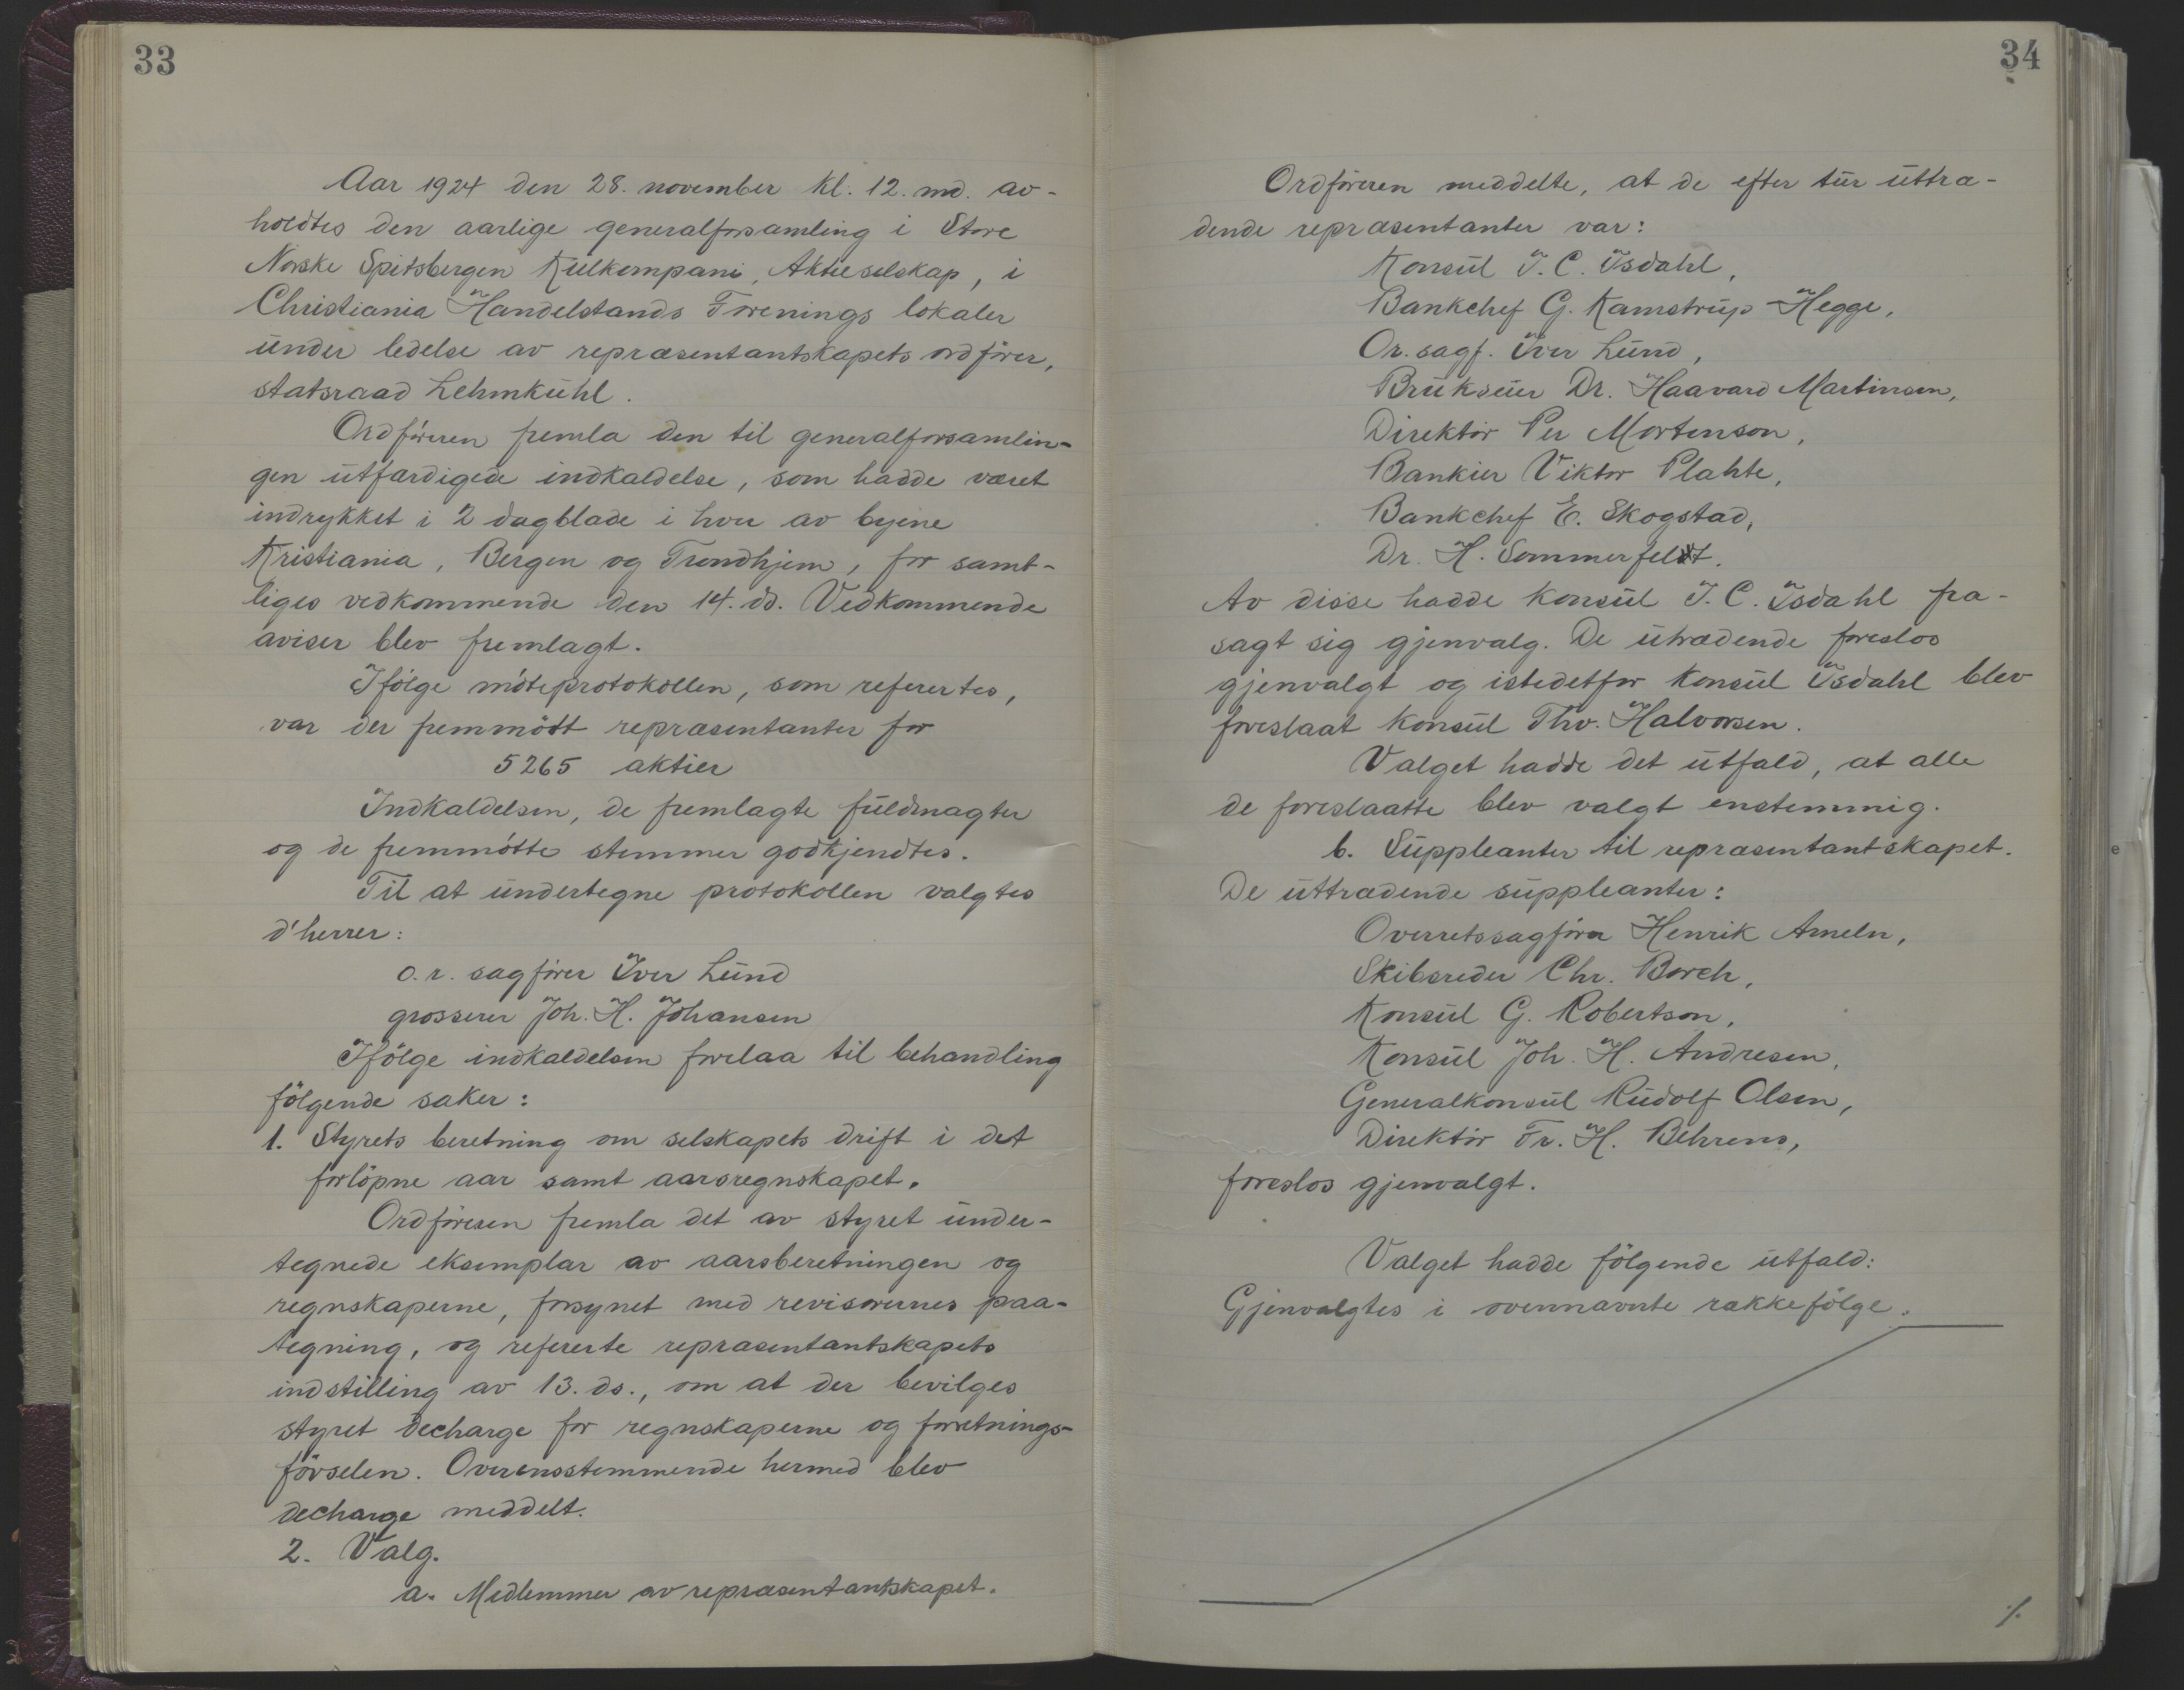 33
Aar 1924 den 28. november kl. 12. md. av-
holdtes den aarlige generalforsamling i Store
Norske Spitsbergen Kulkompani, Aktieselskap, i
Christiania Handelstands Forenings lokaler
under ledelse av repræsentantskapets ordfører,
statsraad Lehmkuhl.
Ordføreren fremla den til generalforsamlin-
gen utfærdigede indkaldelse, som hadde været
indrykket i 2 dagblade i hver av byene
Kristiania, Bergen og Trondhjem, for samt-
liges vedkommende den 14. ds. Vedkommende
aviser blev fremlagt.
Ifølge møteprotokollen, som refertes,
var der fremmøtt repræsentanter for
5265 aktier
Indkaldelsen, de fremlagte fuldmagter
og de fremmøtte stemmer godkjendtes.
Til at undertegne protokollen valgtes
d'herrer:
o.r. sagfører Iver Lund
grosserer Joh. H. Johansen
Ifølge indkaldelsen forelaa til behandling
følgende saker:
1. Styrets beretning om selskapets drift i det
forløpne aar samt aarsregnskapet.
Ordføreren fremla det av styret under-
tegnede eksemplar av aarsberetningen og
regnskaperne, forsynet med revisorernes paa-
tegning, og refererte repræsentantskapets
indstilling av 13. ds., om at der bevilges
styret decharge for regnskaperne og forretnings-
førselen. Overensstemmende hermed blev
decharge meddelt.
2. Valg.
a. Medlemmer av repræsentantskapet.
34
Ordføreren meddelte, at de efter tur uttræ-
dende repræsentanter var:
Konsul I. C. Isdahl,
Bankchef G. Kamstrup Hegge,
Or. sagf. Iver Lund,
Brukseier Dr. Haavard Martinsen,
Direktør Per Mortenson,
Bankier Viktor Plahte,
Bankchef E. Skogstad,
Dr. H. Sommerfeldt.
Av disse hadde konsul I. C. Isdahl fra-
sagt sig gjenvalg. De utrædende foreslos
gjenvalgt og istedetfor konsul Isdahl blev
foreslaat konsul Thv. Halvorsen.
Valget hadde det utfald, at alle
de foreslaatte blev valgt enstemmig.
b. Suppleanter til repræsentantskapet.
De uttrædende suppleanter:
Overretssagfører Henrik Ameln,
Skibsreder Chr. Borch,
Konsul G. Robertson,
Konsul Joh. H. Andresen,
Generalkonsul Rudolf Olsen,
Direktør Fr. H. Behrens,
foreslos gjenvalgt.
Valget hadde følgende utfald:
Gjenvalgtes i ovennævnte rækkefølge.
./.